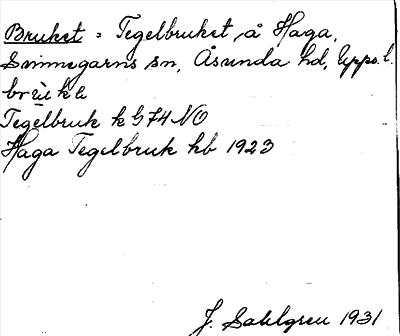 Bruket = Tegelbruket, å Haga,
Svinnegarns sn, Åsunda hd, Upps. l.
Tegelbruk k G74 NO
Haga Tegelbruk kb 1923
J. Sahlgren 1931